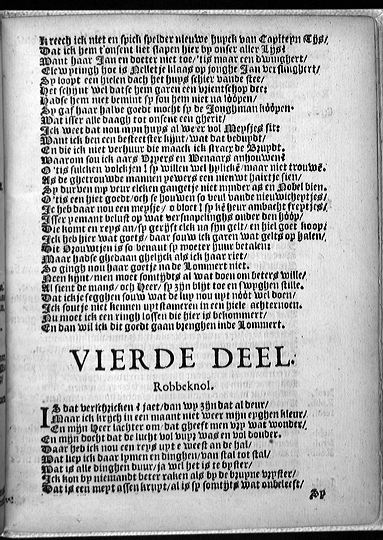 Kreech ick niet en spick spelder nieuwe huyck van Capiteyn Thijs/
Dat ick hem t'onsent liet slapen hier by onser aller Lijs?
Want haar Jan en doeter niet toe/ 'tis maar een
hoe is Nelletje klaas op jonghe Jan
Sy loopt een hielen dach het huys schier vande stee/
Het schynt wel datse hem garen een vrientschop dee:
Hadse hem niet bemint sy sou hem niet na loopen/
Sy gaf haar halve goedt mocht sp de Jonghman koopen.
Wat isser alle daagh tot onsent een gherit/
Ick weet dat nou myn huys al weer vol Meysjes sit:
Want ick ben een besteester kijnt/ wat dat beduydt/
En die ick niet verhuur die maeck ick strack de Bruydt.
Waarom sou ick aars Vryers en Wenaars anhouwen?
O 'tis sulcken volckjen! sp willen wel hylicke/ maar niet trouwe.
As de ghetrouwde mannen pevers een nieuwe haitje sien/
Sy durven myn veur elcken gangetje niet mynder as en Nobel bien.
O 'tis een hiet goedt/ och se houwen so veul vande nieuwicheytjes/
Ick heb daar nou een meysje/ o bloet! sp het heur ambacht
Isser yemant belust op wat versnapelinghs onder den hoop/
Die komt en reys an/ sp gerijft elck na syn gelt/ en hiel goet koop:
Ick heb hier wat goets/ daar souw ick garen wat gelts op halen/
Die Vrouwijen is so benaut sp moeter huur betalen:
Maar hadse ghedaan ghelyck als ick haar riet/
So gingh nou haar goetje na de Lommert niet.
Neen kijnt/ men moet somtijdts al wat doen om beters wille/
Al sient de mans/ och Heer/ sp zijn blijt toe en swyghen stille.
Dat ick je segghen souw wat de luy nou uyt noot wel doen/
Ick souje niet kennen uyt kameren in een hiele achternoen.
Nu moet ick een ringh lossen die hier is bekommert/
En dan wil ick dit goedt gaan brenghen inde Lommert.
VIERDE DEEL.
Robbeknol.
IS dat verschricken? jaet/ dan wy zijn dat al deur/
Maar ick krych in een maant niet weer mijn eyghen kleur/
Een mijn Heer lachter om/ dat gheeft men vry wat wonder/
En mijn docht dat de lucht vol vuyr was en vol donder.
Daar heb ick nou een reys uyt e weest an de hal/
Wat liep ick daar lymen en dinghen/ van stal tot stal/
Wat is alle dinghen duur/ ja wel het is te byster/
Ick kon by niemandt beter raken als by de bruyne vryster/
Dat is een meyt assen kruyt/ al is sp somtyts wat onbeleeft/
Sy